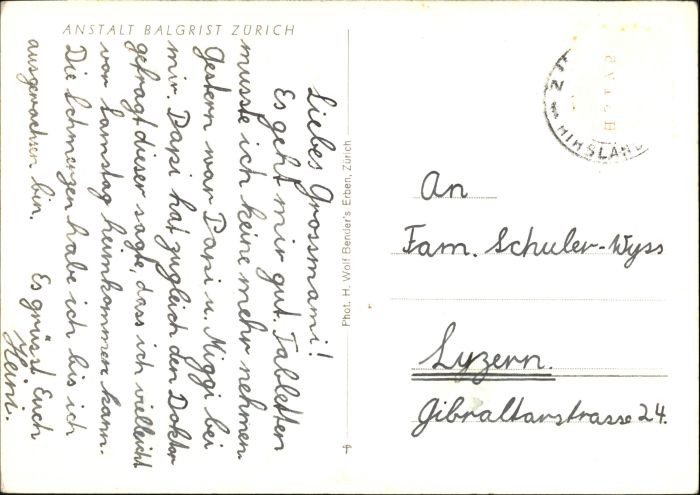 ANSTALT BALGRIST ZÜRICH
Liebes Grossmami!
Es geht mir gut. Tabletten
musste ich keine mehr nehmen.
Gestern war Papi u. Miggi bei
mir. Papi hat zugleich den Doktor
gefragt dieser sagte, dass ich vielleicht
vor Samstag heimkommen kann.
Die Schmerzen habe ich bis ich
ausgewachsen bin. Es grüsst Euch
Heini.
Phot. H. Wolf Bender's Erben, Zürich
4
HIRSLAND
An
Fam. Schuler-Wyss
Luzern.
Gibraltarstrasse 24.